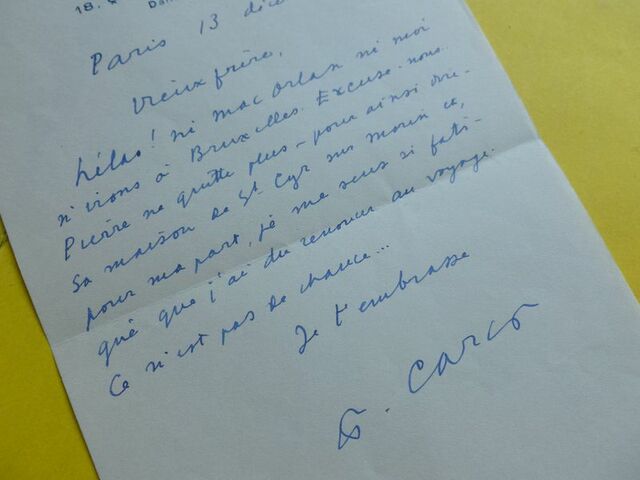 18.
Paris 13 déce
Vieux frère,
hélas! ni Mac Orlan ni moi
n'irons à Bruxelles. Excuse-nous.
Pierre ne quitte plus – pour ainsi dire –
sa maison de St Cyr sur Morin et,
pour ma part, je me sens si fati-
gué que j'ai du renoncer au voyage.
Ce n'est pas de chance...
Je t'embrasse
F. Carco